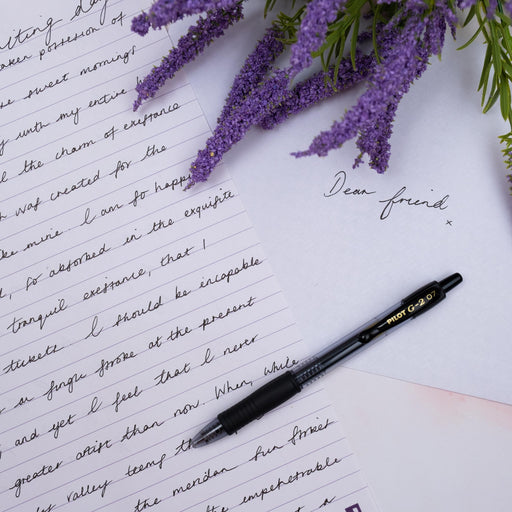 day
taken possession of
sweet mornings
with my entire
the charm of existance
was created for the
mine. I am so
so absorbed in the exquisite
tranquil existance, that I
tickets. I should be incapable
a single stroke at the present
and yet I feel that I never
greater artist than now. When, while
valley
the meridan sun strikes
the impenetrable
Dear friend
x
PILOT G-2 07